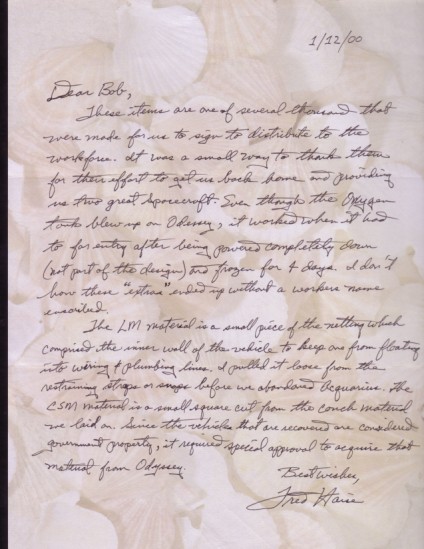 1/12/00
Dear Bob,
These items are one of several thousand that
were made for us to sign to distribute to the
workforce. It was a small way to thank them
for their effort to get us back home and providing
us two great spacecraft. Even though the Oxygen
tank blew up on Odessey, it worked when it had
to for entry after being powered completely down
(not part of the design) and frozen for 4 days. I don't
how these "extras" ended up without a workers name
enscribed.
The LM material is a small piece of the netting which
comprised the inner wall of the vehicle to keep one from floating
into wiring & plumbing lines. I pulled it loose from the
restraining straps or snaps before we abandoned Aquarius. The
CSM material is a small square cut from the couch material
we laid on. Since the vehicles that are recovered are considered
government property, it required special approval to acquire that
material from Odyssey.
Best wishes,
Fred Haise